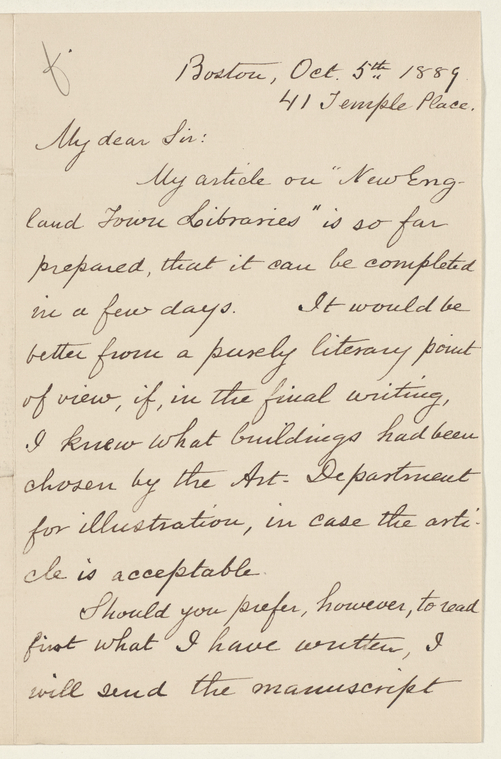 Boston, Oct. 5th 1889.
41 Temple Place.
My dear Sir:
My article on "New Eng-
land Town Libraries" is so far
prepared, that it can be completed
in a few days. It would be
better from a purely literary point
of view, if, in the final writing,
I knew what buildings had been
chosen by the Art-Department
for illustration, in case the arti-
cle is acceptable.
Should you prefer, however, to read
first what I have written, I
will send the manuscript